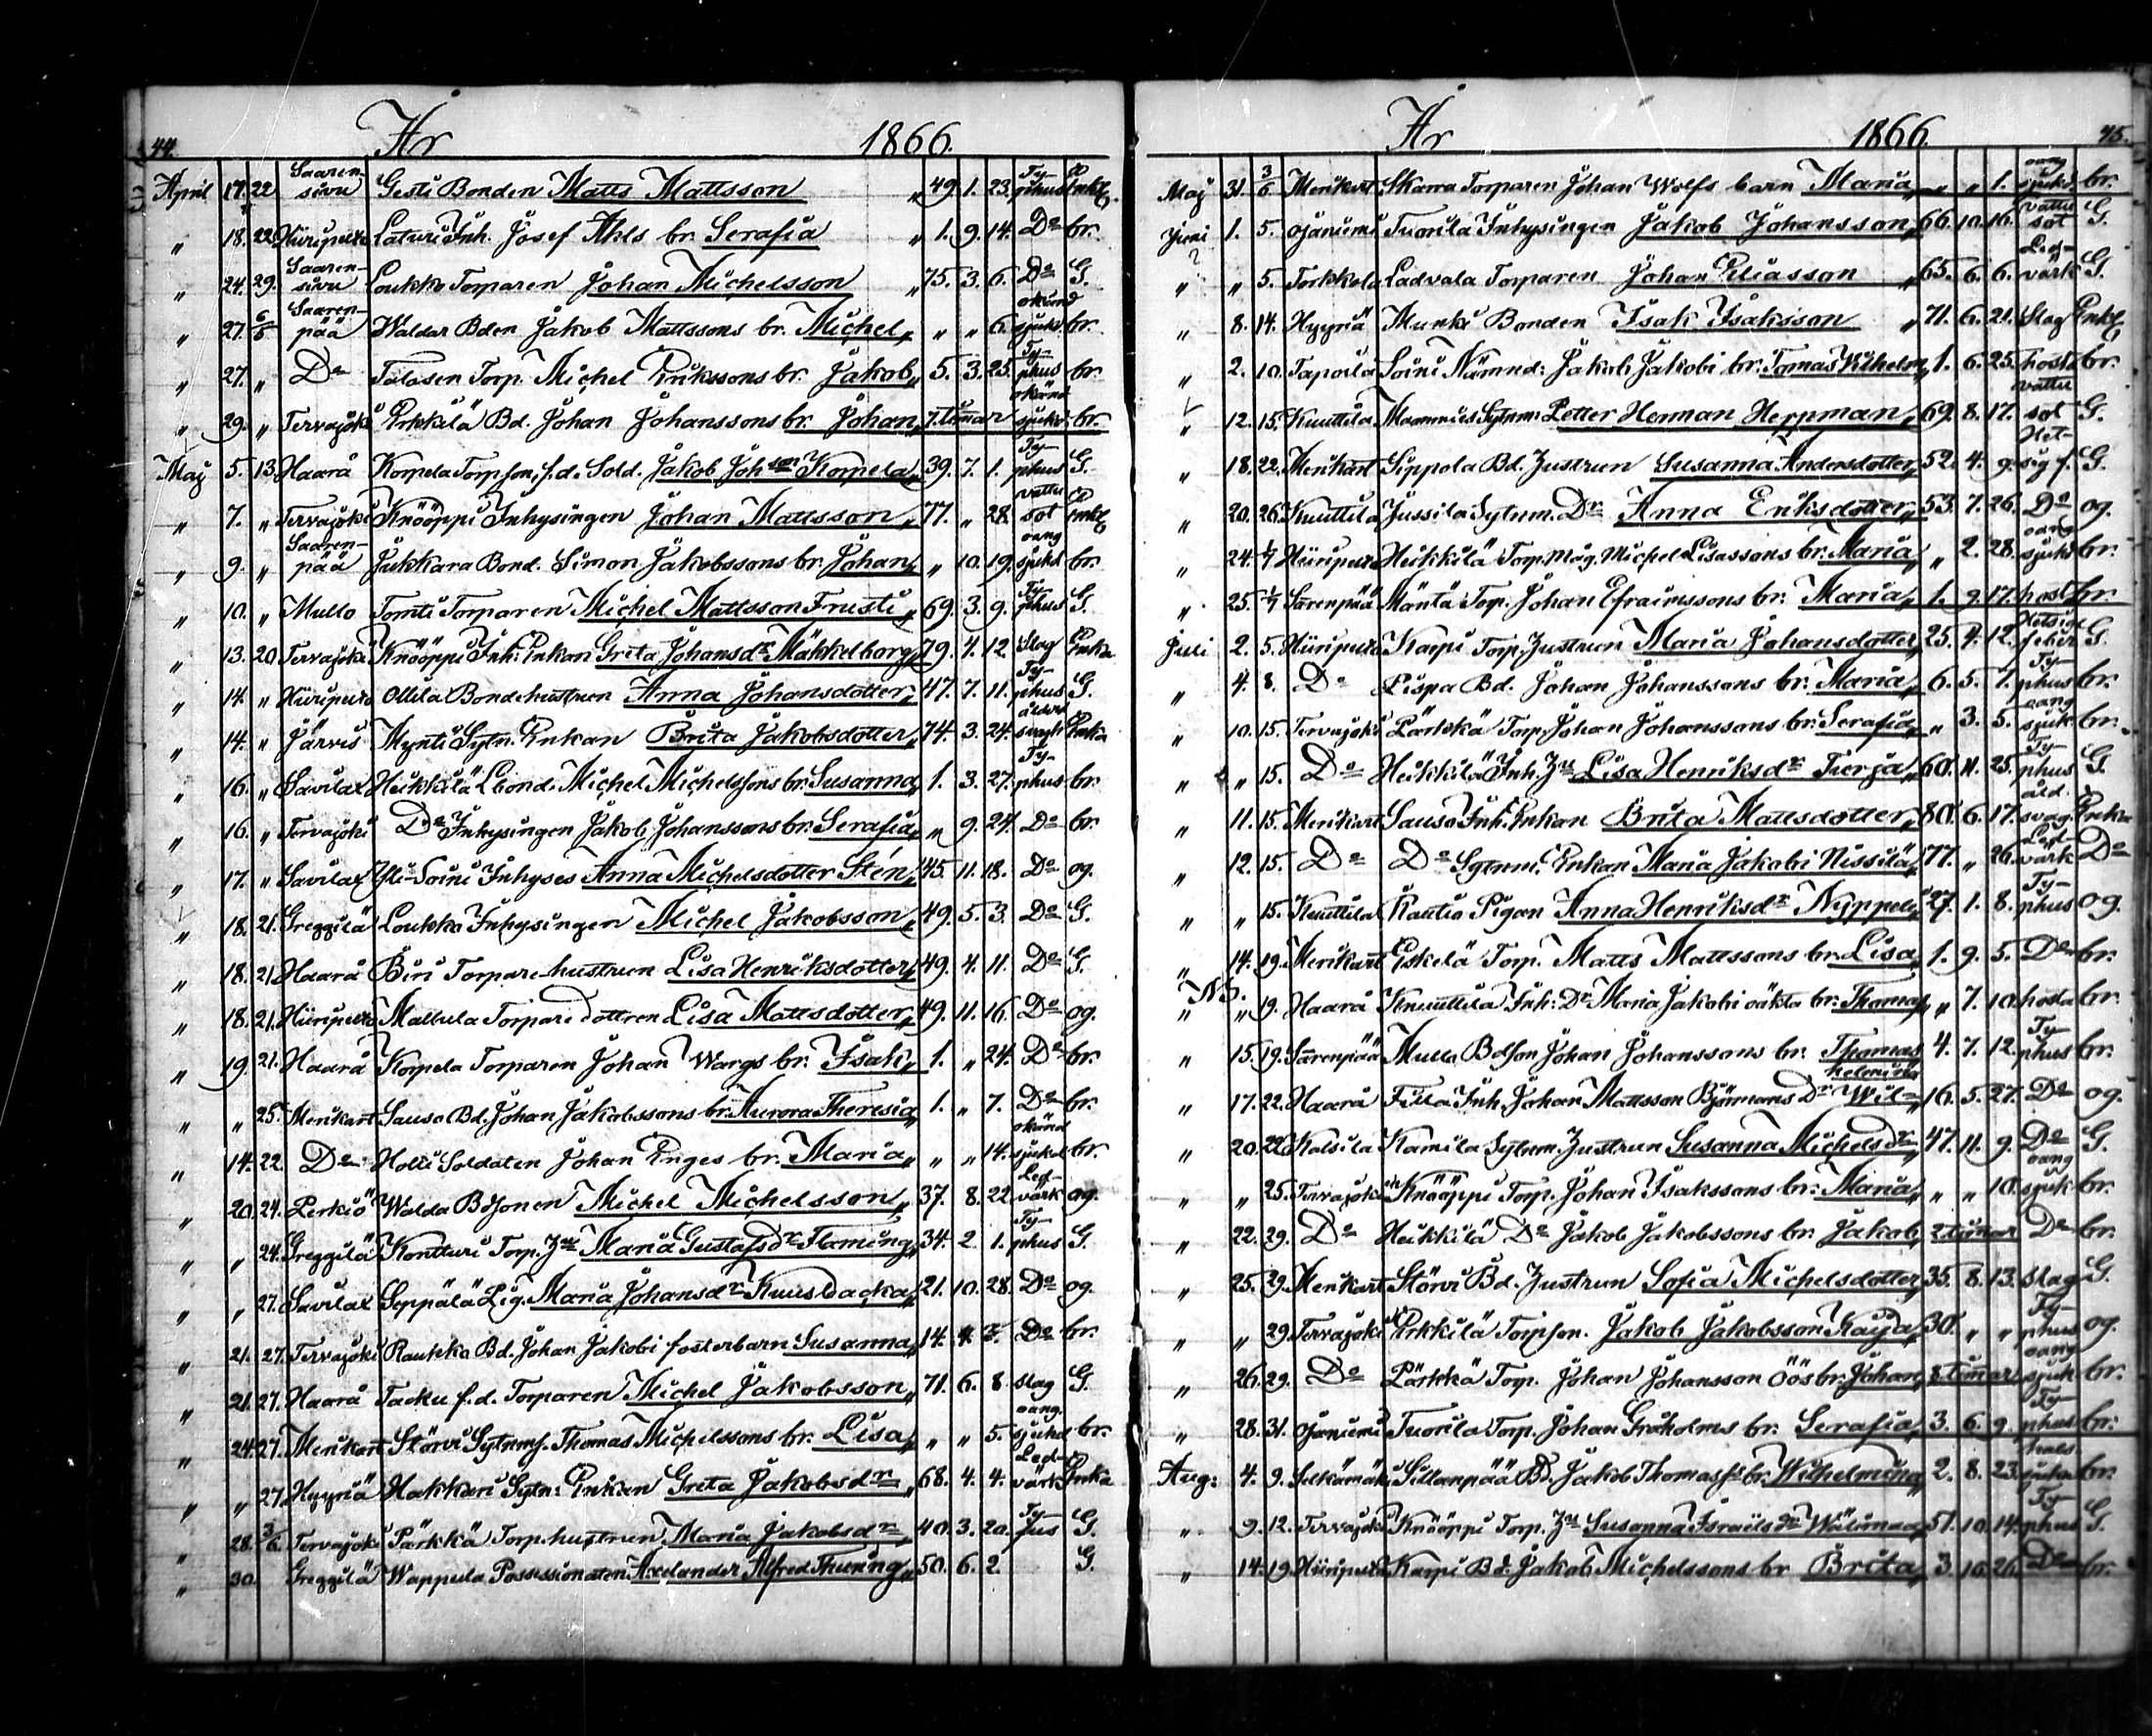 44. År 1866.
April 17. 22 Saarensivu Gesti Bonden Matts Mattsson „ 49. 1. 23. Typhus Enkl.
„ 18. 22. Hiiripelto Laturi Inh. Josef Ahls br. Serafia „ 1. 9. 14. Do br.
„ 24. 29. Saarensivu Loukko Torparen Johan Michelsson „ 75. 3. 6. Do G.
„ 27. 6/5 Saarenpää Waldar Bden Jakob Mattssons br. Michel „ „ „ 6. okänd sjukd. br.
„ 27. „ Do Talasen Torp. Michel Erikssons br. Jakob „ 5. 3. 25. Typhus br.
„ 29. „ Tervajoki Erkkilä Bd. Johan Johanssons br. Johan „ 7. timar okänd sjukd. br.
Maj 5. 13. Haara Korpela Torp.son, f.d. Sold. Jakob Johsson Korpela „ 39. 7. 1. Typhus G.
„ 7. „ Tervajoki Knööppi Inhysingen Johan Mattsson „ 77. „ 28. vattusot Enkl
„ 9. „ Saarenpää Jukkara Bond. Simon Jakobssons br. Johan „ „ 10. 19. oang sjukd br.
„ 10. „ Mullo Tomti Torparen Michel Mattsson Frusti „ 69. 3. 9. Typhus G.
„ 13. 20 Tervajoki Knööppi Inh: Enkan Greta Johansdr Mäkkelborg „ 79. 4. 12. Slag Enka
„ 14. „ Hiiripelto Ollila Bondehustrun Anna Johansdotter „ 47. 7. 11. Typhus G.
„ 14. „ Järvis Mynti Sytn. Enkan Brita Jakobsdotter „ 74. 3. 24. ålderd svagh Enka
„ 16. „ Savilax Heikkilä Lbond. Michel Michelssons br. Susanna „ 1. 3. 27. Typhus br.
„ 16. „ Tervajoki Do Inhysingen Jakob Johanssons br. Serafia „ „ 9. 24. Do br.
„ 17. „ Savilax Yli-Soini Inhyses Anna Michelsdotter Stén „ 45. 11. 18. Do og.
„ 18. 21. Greggilä Loukko Inhysingen Michel Jakobsson „ 49. 5. 3. Do G.
„ 18. 21. Haara Biri Torpare-hustrun Lisa Henriksdotter „ 49. 4. 11. Do G.
„ 18. 21. Hiiripelto Mallula Torpare dottren Lisa Mattsdotter „ 49. 11. 16. Do og.
„ 19. 21. Haara Korpela Torparen Johan Wargs br. Isak „ 1. „ 24. Do br.
„ „ 25. Merikart Sauso Bd. Johan Jakobssons br. Aurora Theresia „ 1. „ 7. Do br.
„ 14. 22. Do Holli Soldaten Johan Enges br. Maria „ „ „ 14. okänd sjukd br.
„ 20. 24. Perkiö Walda Bdsonen Michel Michelsson „ 37. 8. 22. Ledvärk og.
„ „ 24. Greggilä Kontturi Torp. Hu Maria Gustafsdr Flaming „ 34. 2 1. Typhus G.
„ „ 27. Savilax Seppälä Pig. Maria Johansdr Kuusbacka „ 21. 10. 28. Do og.
„ 21. 27. Tervajoki Raukka Bd. Johan Jakobi fosterbarn Susanna „ 14. Do br.
„ 21. 27. Haara Tacku f.d. Torparen Michel Jakobsson „ 71. 6. 8. Slag G.
„ 24. 27. Merikart Störvi Sytnings. Thomas Michelssons br. Lisa „ „ „ 5. oang. sjukd br.
„ „ 27. Hyyriä Hakkari Sytn: Enkan Greta Jakobsdr „ 68. 4. 4. Ledvärk Enka
„ 28. 3/6. Tervajoki Pärkkä Torp.hustrun Maria Jakobsdr „ 40. 3. 20. Tyfus G.
„ 30. Greggilä Wappula Possessionaten Axelander Alfred Thuring „ 50. 6. 2. G.
År 1866. 45.
Maj 31. 3/6 Merikart Skarra Torparen Johan Wolfs barn Maria „ „ „ 1. oang sjukd. br.
Juni 1. 5. Ojaniemi Tuorila Inhysingen Jakob Johansson „ 66. 10. 16. vattusot G.
„ „ 5. Torkkola Ladvala Torparen Johan Eliasson „ 65. 6. 6. Ledvärk G.
„ 8. 14. Hyyriä Munki Bonden Isak Isaksson „ 71. 6. 21. Slag Enkl
„ 2. 10. Tapoila Soini Nämnd: Jakob Jakobi br. Tomas Wilhelm „ 1. 6. 25. hosta br.
„ 12. 15. Kuuttila Mammies Sytnm. Petter Herman Heppman „ 69. 8. 17. vattusot G.
„ 18. 22. Merikart Sippola Bd. hustrun Susanna Andersdotter „ 52. 4. 9. Hetsig f. G.
„ 20. 26. Kuuttila Jussila Sytnm. Dr Anna Eriksdotter „ 53. 7. 26. Do og.
„ 24. 1/7 Hiiripelto Heikkilä Torp.måg. Michel Lisassons br. Maria „ „ 2. 28. oang sjukd br.
„ 25. 1/7 Sarenpää Mäntä Torp. Johan Efraimssons br. Maria „ 1. 9. 17. hosta br.
Juli 2. 5. Hiiripelto Karpi Torp. hustrun Maria Johansdotter „ 25. 4. 12. Hetsig feber G.
„ 4. 8. Do Pispa Bd. Johan Johanssons br. Maria „ 6. 5. 7. Typhus br.
„ 10. 15. Tervajoki Pärkkä Torp. Johan Johanssons br. Serafia „ „ 3. 5. oang sjuk br.
„ „ 15. Do Heikkilä Inh. Hu Lisa Henriksdr Tierja „ 60. 11. 25. Typhus G.
„ 11. 15. Merikart Sauso Inh. Enkan Brita Mattsdotter „ 80. 6. 17. åld. svag. Enka
„ 12. 15. Do Do Sytnm. Enkan Maria Jakobi Nissilä „ 77. „ 26. Ledvärk Do
„ „ 15. Kuuttila Rautio Pigan Anna Henriksdr Nyppelö „ 27. 1. 8. Typhus og.
„ 14. 19. Merikart Eskelä Torp. Matts Mattssons br. Lisa „ 1. 9. 5. Do br.
„ „ 19. Haara Knuuttila Inh: Dr Maria Jakobi oäkta br. Thomas „ „ 7. 10. hosta br.
„ 15. 19. Särenpää Mulla Bdson Johan Johanssons br. Thomas 4. 7. 12. Typhus br.
„ 17. 22. Haara Filla Inh. Johan Mattsson Björmans Dr Wilhelmina „ 16. 5. 27. Do og.
„ 20. 22. Kalsila Kamila Sytnm. hustrun Susanna Michelsdr „ 47. 11. 9. Do G.
„ „ 25. Tervajoki Knööppi Torp. Johan Isakssons br. Maria „ „ „ 10. oang sjuk br.
„ 22. 29. Do Heikkilä Do Jakob Jakobssons br. Jakob 2 timar Do br.
„ 25. 29. Merikart Störvi Bd. hustrun Sofia Michelsdotter „ 35. 8. 13. Slag G.
„ „ 29. Tervajoki Erkkilä Torpson. Jakob Jakobsson Kaija „ 30. „ „ Typhus og.
„ 26. 29. Do Pärkkä Torp. Johan Johansson Öös br. Johan, 8 timar oang sjuk br.
„ 28. 31. Ojaniemi Tuorila Torp. Johan Gråholms br. Serafia „ 3. 6. 9. Typhus br.
Aug: 4. 9. Selkämäki Sillanpää Bd. Jakob Thomass. br. Wilhelmina „ 2. 8. 23. hals sjuka br.
„ 9. 12. Tervajoki Knööppi Torp. Hu Susanna Israelsdr Wälimaa „ 51. 10. 14. Typhus G.
„ 14. 19. Hiiripelto Karpi Bd. Jakob Michelssons br Brita „ 3. 10. 26. Do br.